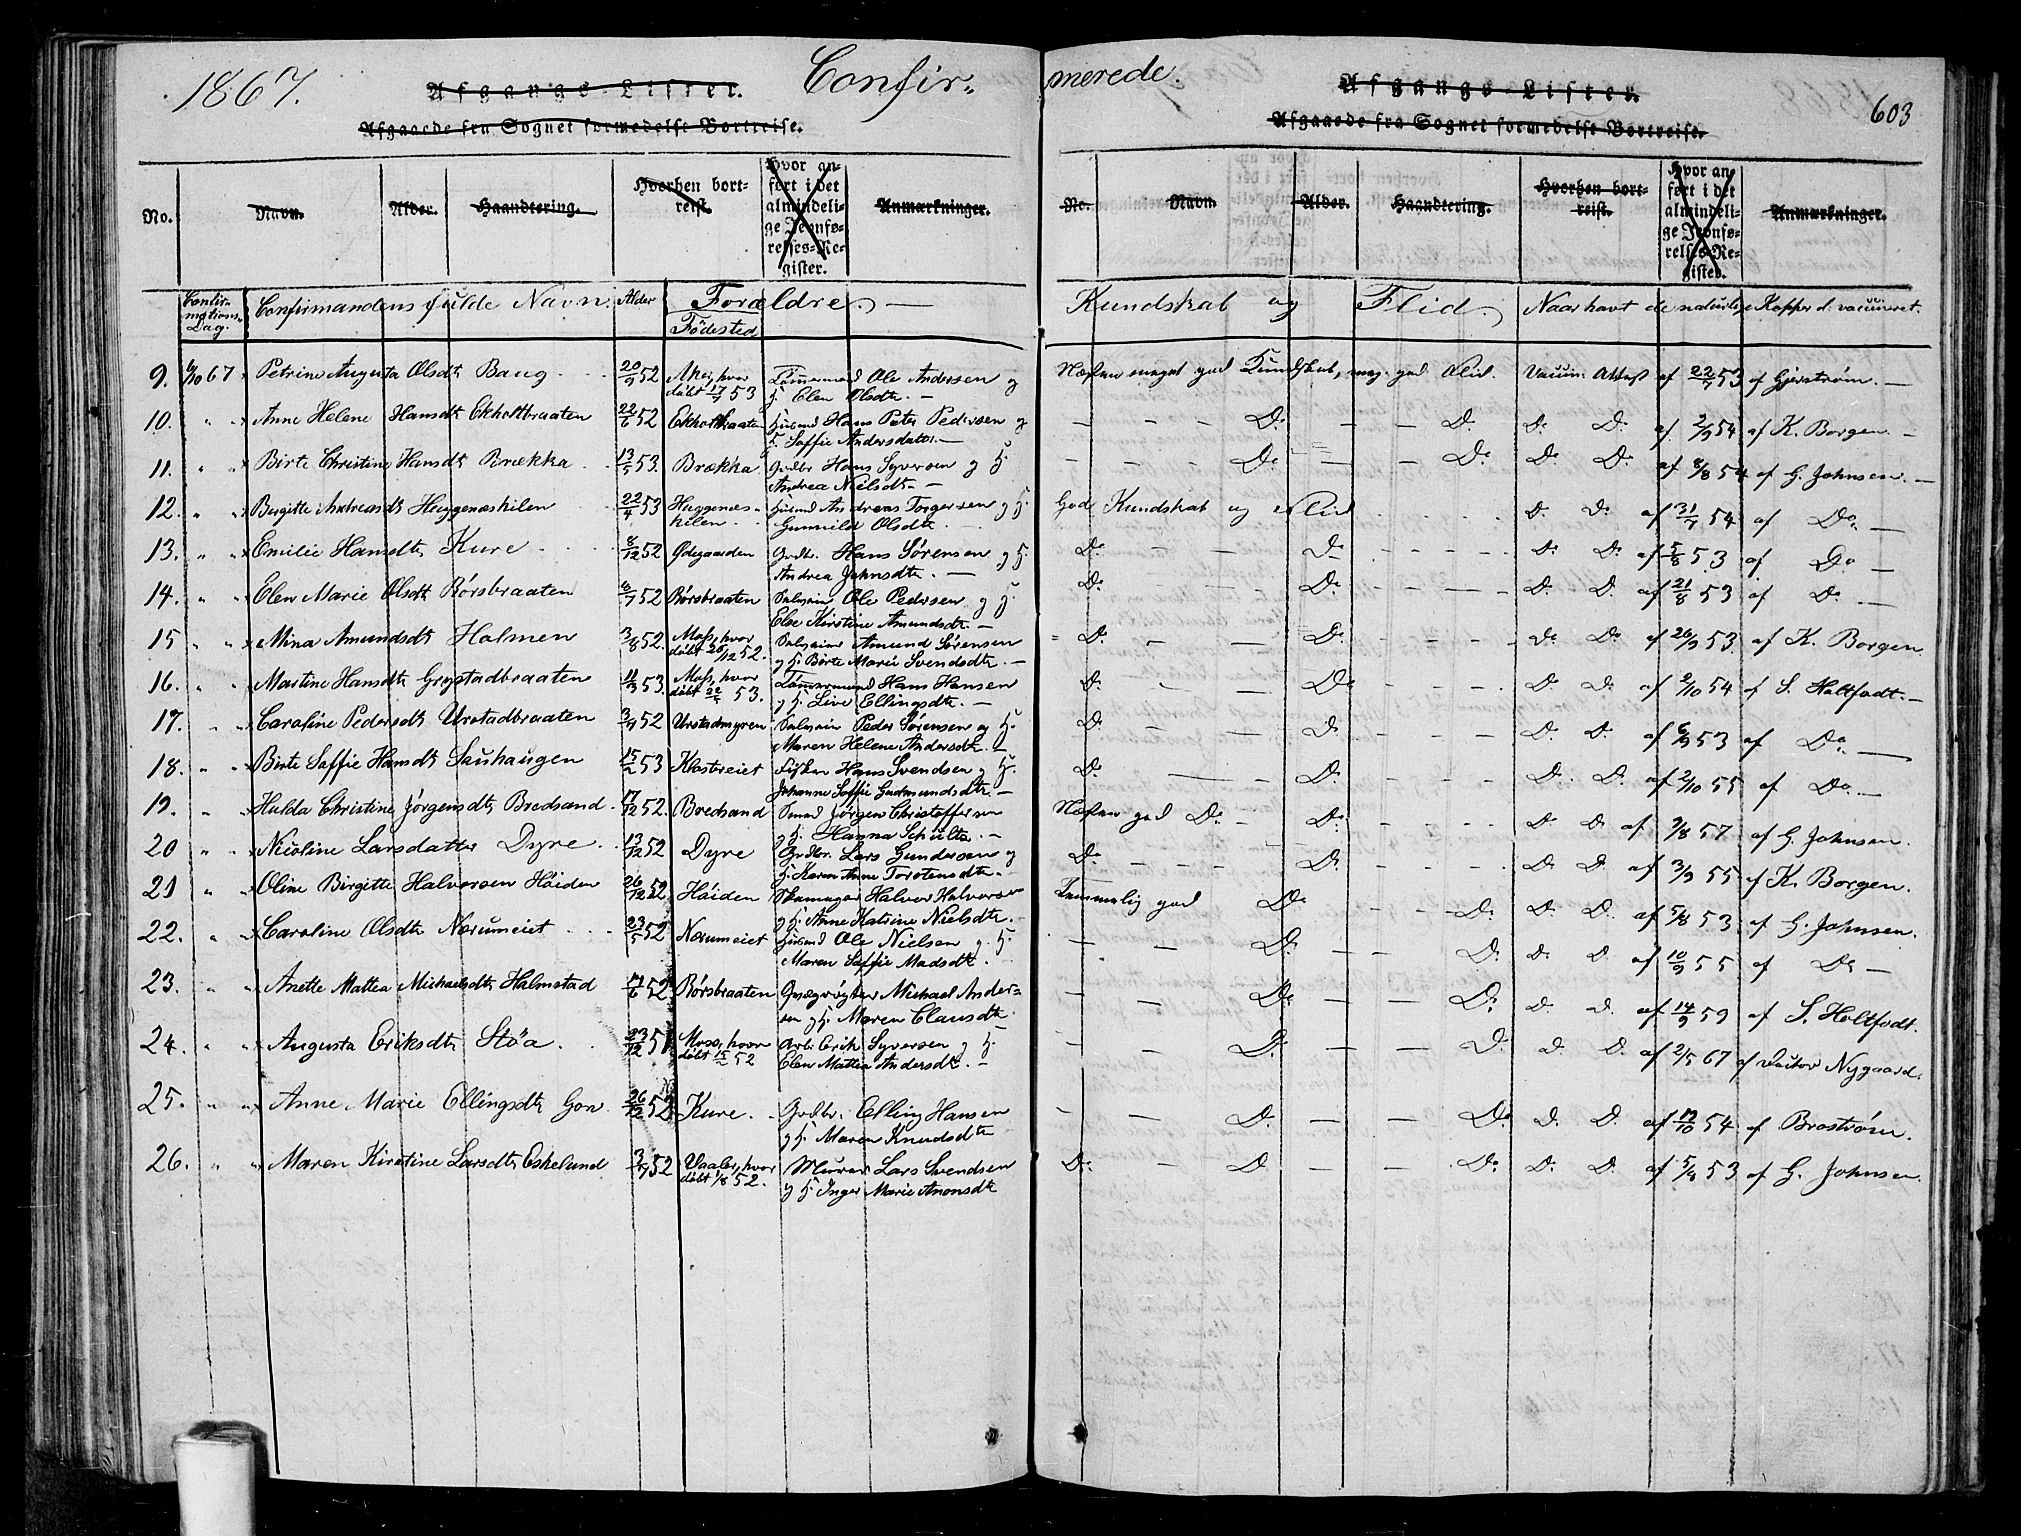 1867.
Afgangs-Lister.
Confir-
merede.
Afgangs-Lister.
603
Afgaaede fra Sognet formedelst Bortreise.
Afgaaede fra Sognet formedelst Bortreise.
No. Navn. Alder. Haandtering. Hvorhen bortreist. Hvor anført i det almindelige Jevnførelses-Register. Anmærkninger.
No. Navn. Alder. Haandtering. Hvorhen bortreist. Hvor anført i det almindelige Jevnførelses-Register. Anmærkninger.
Confirmations Dag. Confirmandens fulde Navn. Alder Forældre. Fødested Kundskab og Flid. Naar havt de naturlige Kopper el. vaccineret.
9. 6/10 67 Petrine Augusta Olsdtr Baug 20/9 52 Aker, hvor døbt 17/7 53 Tømermand Ole Andersen og H. Elen Olsdtr. Næsten meget god Kundskab, meg. god Flid. Vaccin. Attest af 22/7 53 af Gjerstrøm.
10. " " Anne Helene Hansdtr Ekholtbraaten 22/6 52 Ekholtbraaten Husmd Hans Peter Pedersen og H. Soffie Andersdatter D. D. D. D. af 2/9 54 af K. Borgen.
11. " " Birte Christine Hansdtr Brækka 13/5 53. Brækka Grdbr Hans Syversen og H. Andrea Nielsdtr. Do Do Do D. af 8/8 54 af G. Johnsen.
12. " " Birgitte Andreasdtr Huggenæskilen 22/4 53 Huggenæskilen Husmd Andreas Torgersen og H. Gunnild Olsdtr. God Kundskab og Flid D. D. af 31/7 54 af Do.
13. " " Emilie Hansdtr Kure 8/12 52 Ødegaarden Grdbr. Hans Sørensen og H. Andrea Johnsdtr. Do D. Do D. af 5/8 53 af Do
14. " " Elen Marie Olsdtr Rørsbraaten 6/7 52 Rørsbraaten Ole Pedersen og H. Else Kirstine Amundsdtr. Do Do D. D. af 21/8 53 af Do
15 " " Mina Amundsdtr Holmen 3/8 52. Moss, hvor døbt 26/12 52. Amund Sørensen og H. Birte Marie Svendsdtr. D. Do Do Do af 26/9 53. af K. Borgen.
16. " " Martine Hansdtr Grystadbraaten 11/3 53. Moss, hvor døbt 22/5 53. Tømermand Hans Hansen og H. Live Ellingsdtr. D. Do D. D. af 2/10 54 af S. Holtfodt.
17. " " Caroline Pedersdtr Urstadbraaten 3/9 52 Urstadmyren Peder Sørensen og H. Maren Helene Andersdtr. D. D. D. D. af 6/9 53 af Do
18. " " Birte Soffie Hansdtr Sauhaugen 15/2 53 Klostereiet Fisker Hans Svendsen og H. Johanne Soffie Gudmundsdtr. D. D. D. D. af 2/10 55 af Do.
19. " Hulda Christine Jørgensdtr Bredsand 17/12 52. Bredsand Jørgen Christoffersen og H. Hanna Schultz. Næsten god Do Do D. D. af 9/8 57 af G. Johnsen.
20 " " Nicoline Larsdatter Dyre 13/12 52 Dyre Grdbr. Lars Gundersen og H. Karen Anne Torstensdtr. Do D. D. D. af 3/9 55 af K. Borgen.
21 " " Oline Birgitte Halvorsen Höiden 26/12 52 Höiden Skomager Halvor Halvorsen og H. Anne Katrine Nielsdtr. Temmelig god D. D. D. D. af 5/8 53 af G. Johnsen.
22. " " Caroline Olsdtr Nærumeiet 23/5 52 Nærumeiet Husmd Ole Nielsen og H. Maren Soffie Madsdtr. D. D. D. D. af 10/9 55 af Do
23. " " Anette Mattea Michaelsdtr Halmstad 17/6 52 Rørsbraaten Michael Andersen og H. Maren Clausdtr. Do D. D. D. af 14/9 59 af S. Holtfodt.
24. " " Augusta Eriksdtr Stöa 23/12 51 Moss, hvor døbt 15/2 52 Arb. Erik Syversen og H. Elen Mattea Andersdtr. D. D. D. D. af 2/5 67 af Doctor Nygaard.
25. " " Anne Marie Ellingsdtr Gon 26/12 52 Kure. Grdbr. Elling Hansen og H. Maren Knudsdtr D. Do D. D. af 17/10 54 af Broström.
26. " " Maren Kirstine Larsdtr Eskelund 3/7 52 Vaaler, hvor døbt 1/8 52. Murer Lars Svendsen og H. Inger Marie Anonsdtr D. D Do D. D. af 5/9 53 af G. Johnsen.